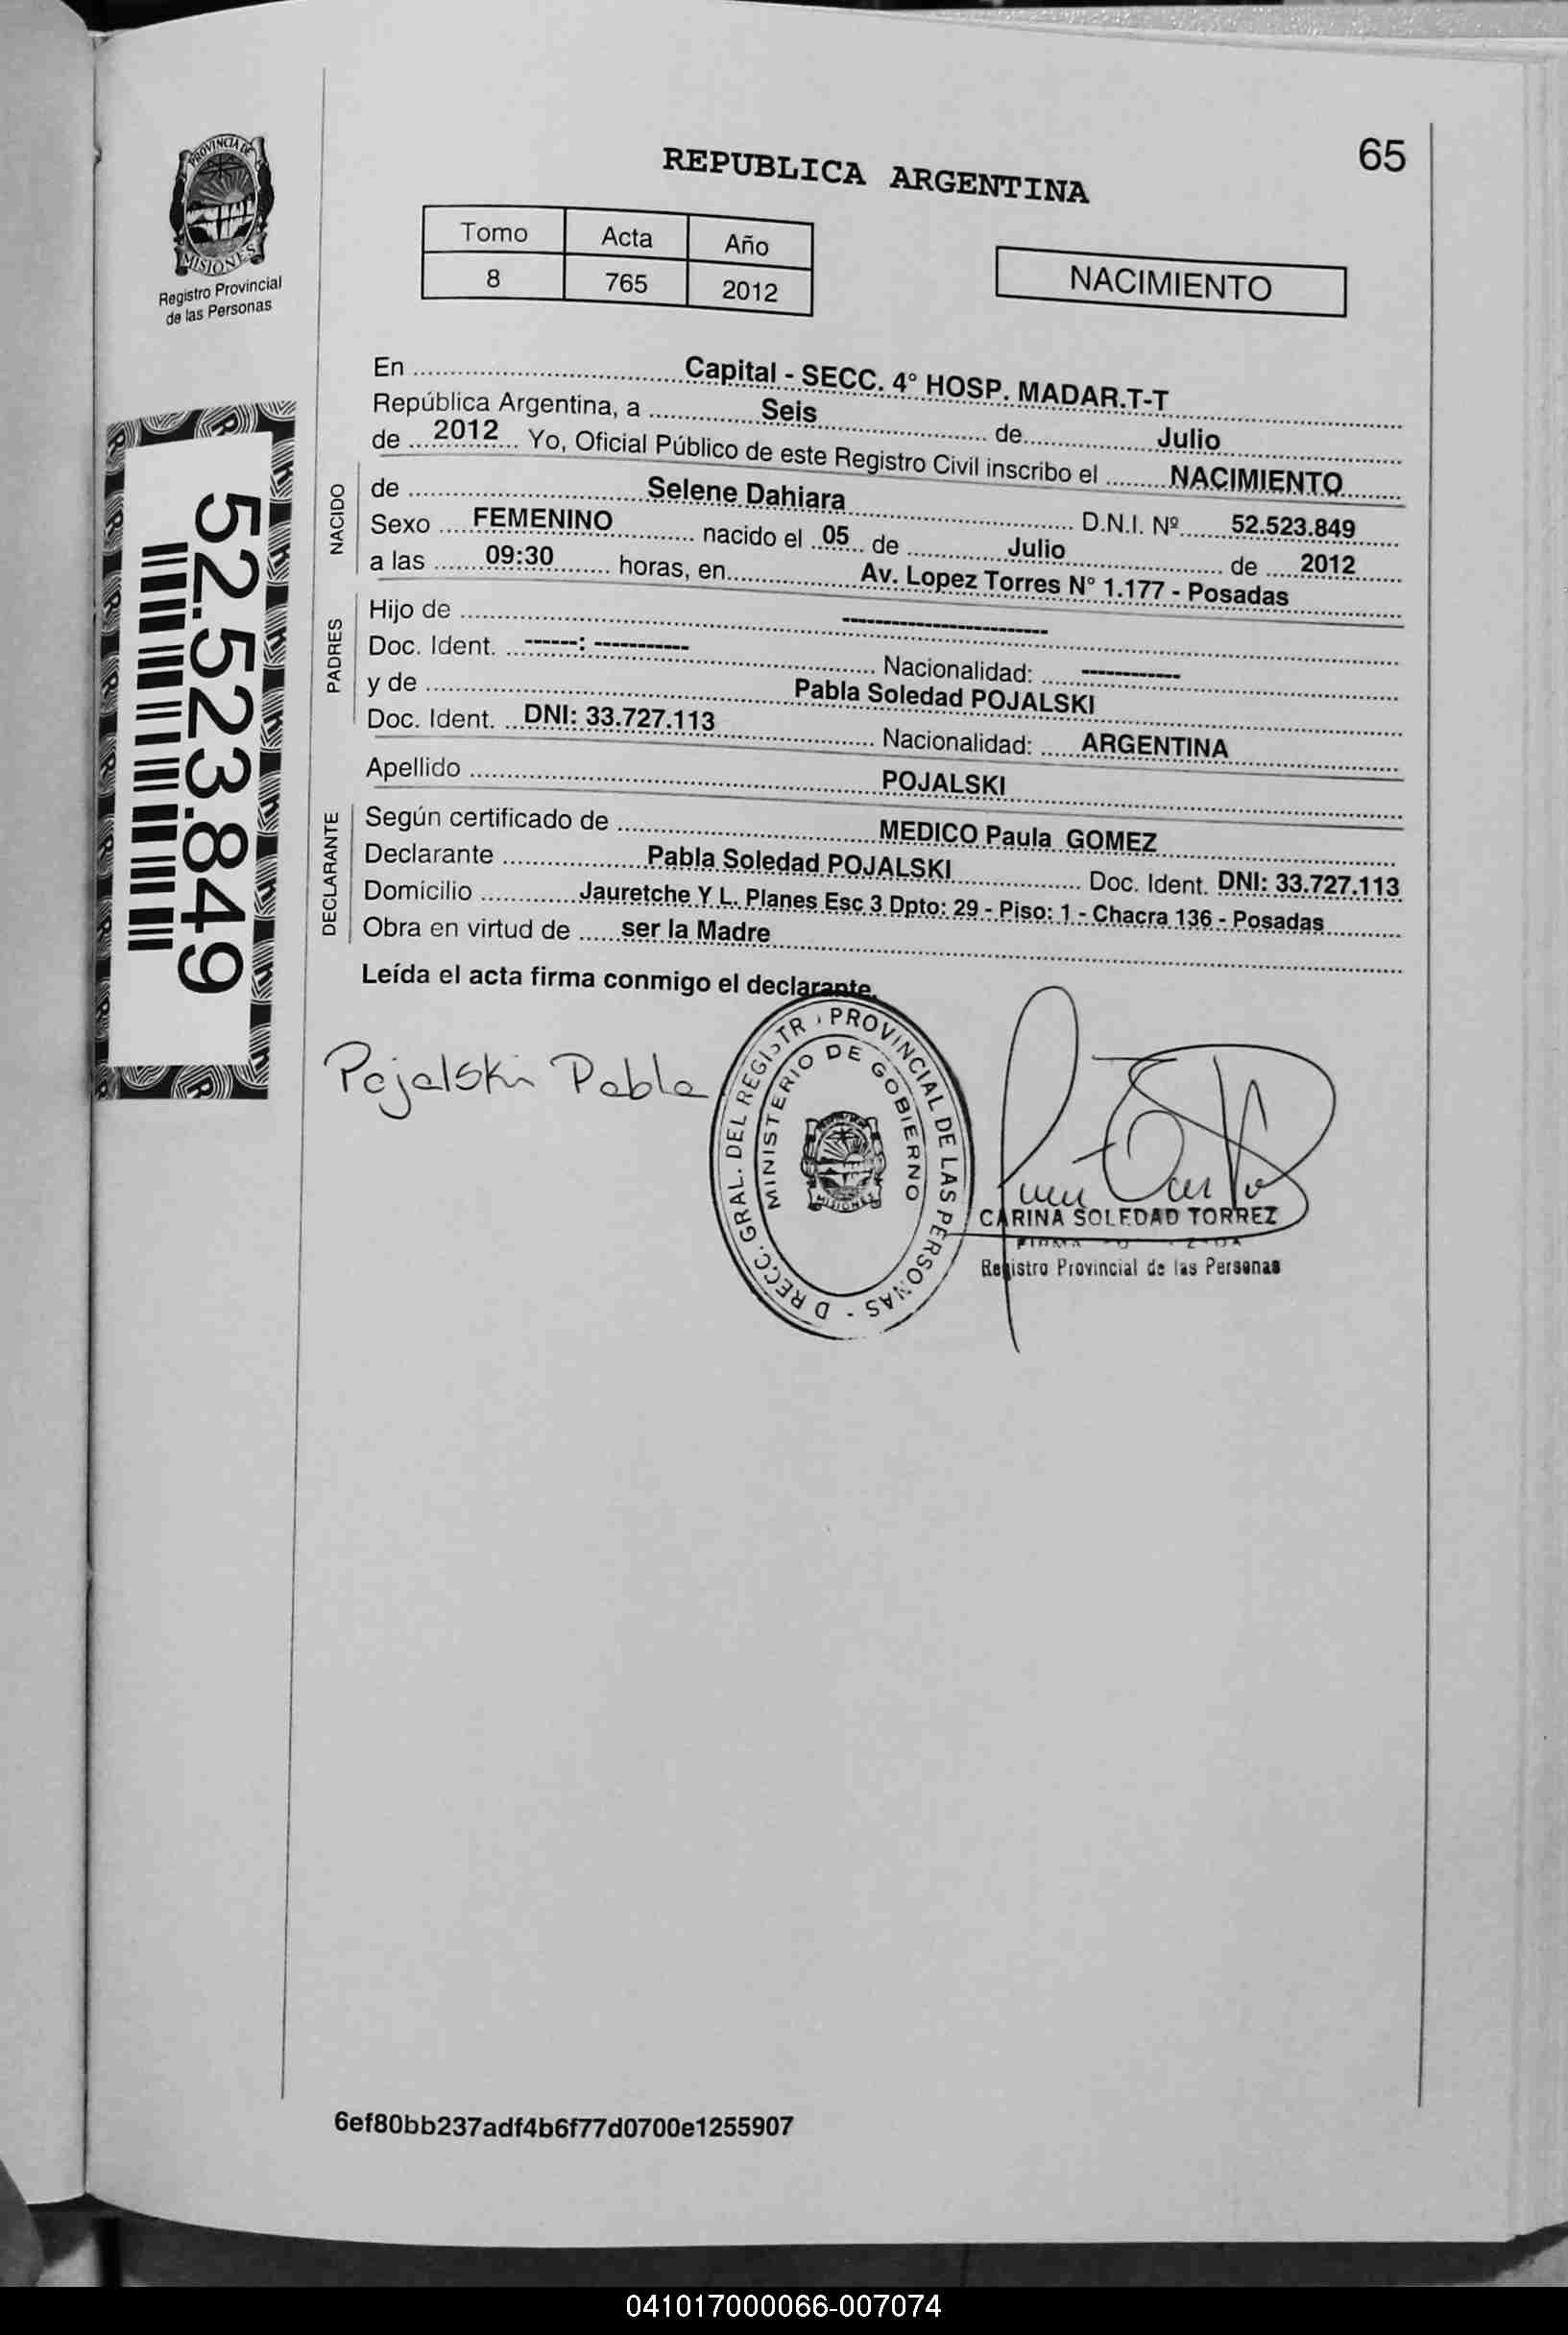 65
PROVINCIA DE
MISIONES
Registro Provincial
de las Personas
REPUBLICA ARGENTINA
Tomo Acta Año
8 765 2012
NACIMIENTO
En Capital - SECC. 4° HOSP. MADAR.T-T
República Argentina, a Seis de Julio
de 2012 Yo, Oficial Público de este Registro Civil inscribo el NACIMIENTO
NACIDO
de Selene Dahiara D.N.I. Nº 52.523.849
Sexo FEMENINO nacido el 05 de Julio de 2012
a las 09:30 horas, en Av. Lopez Torres N° 1.177 - Posadas
PADRES
Hijo de -------------------------
Doc. Ident. ------: ----------- Nacionalidad: ------------
y de Pabla Soledad POJALSKI
Doc. Ident. DNI: 33.727.113 Nacionalidad: ARGENTINA
Apellido POJALSKI
DECLARANTE
Según certificado de MEDICO Paula GOMEZ
Declarante Pabla Soledad POJALSKI Doc. Ident. DNI: 33.727.113
Domicilio Jauretche Y L. Planes Esc 3 Dpto: 29 - Piso: 1 - Chacra 136 - Posadas
Obra en virtud de ser la Madre
Leída el acta firma conmigo el declarante.
52.523.849
Pojalski Pabla
D RECC. GRAL. DEL REGISTR PROVINCIAL DE LAS PERSONAS -
MINISTERIO DE GOBIERNO
MISIONES
CARINA SOLEDAD TORREZ
Registro Provincial de las Personas
6ef80bb237adf4b6f77d0700e1255907
041017000066-007074